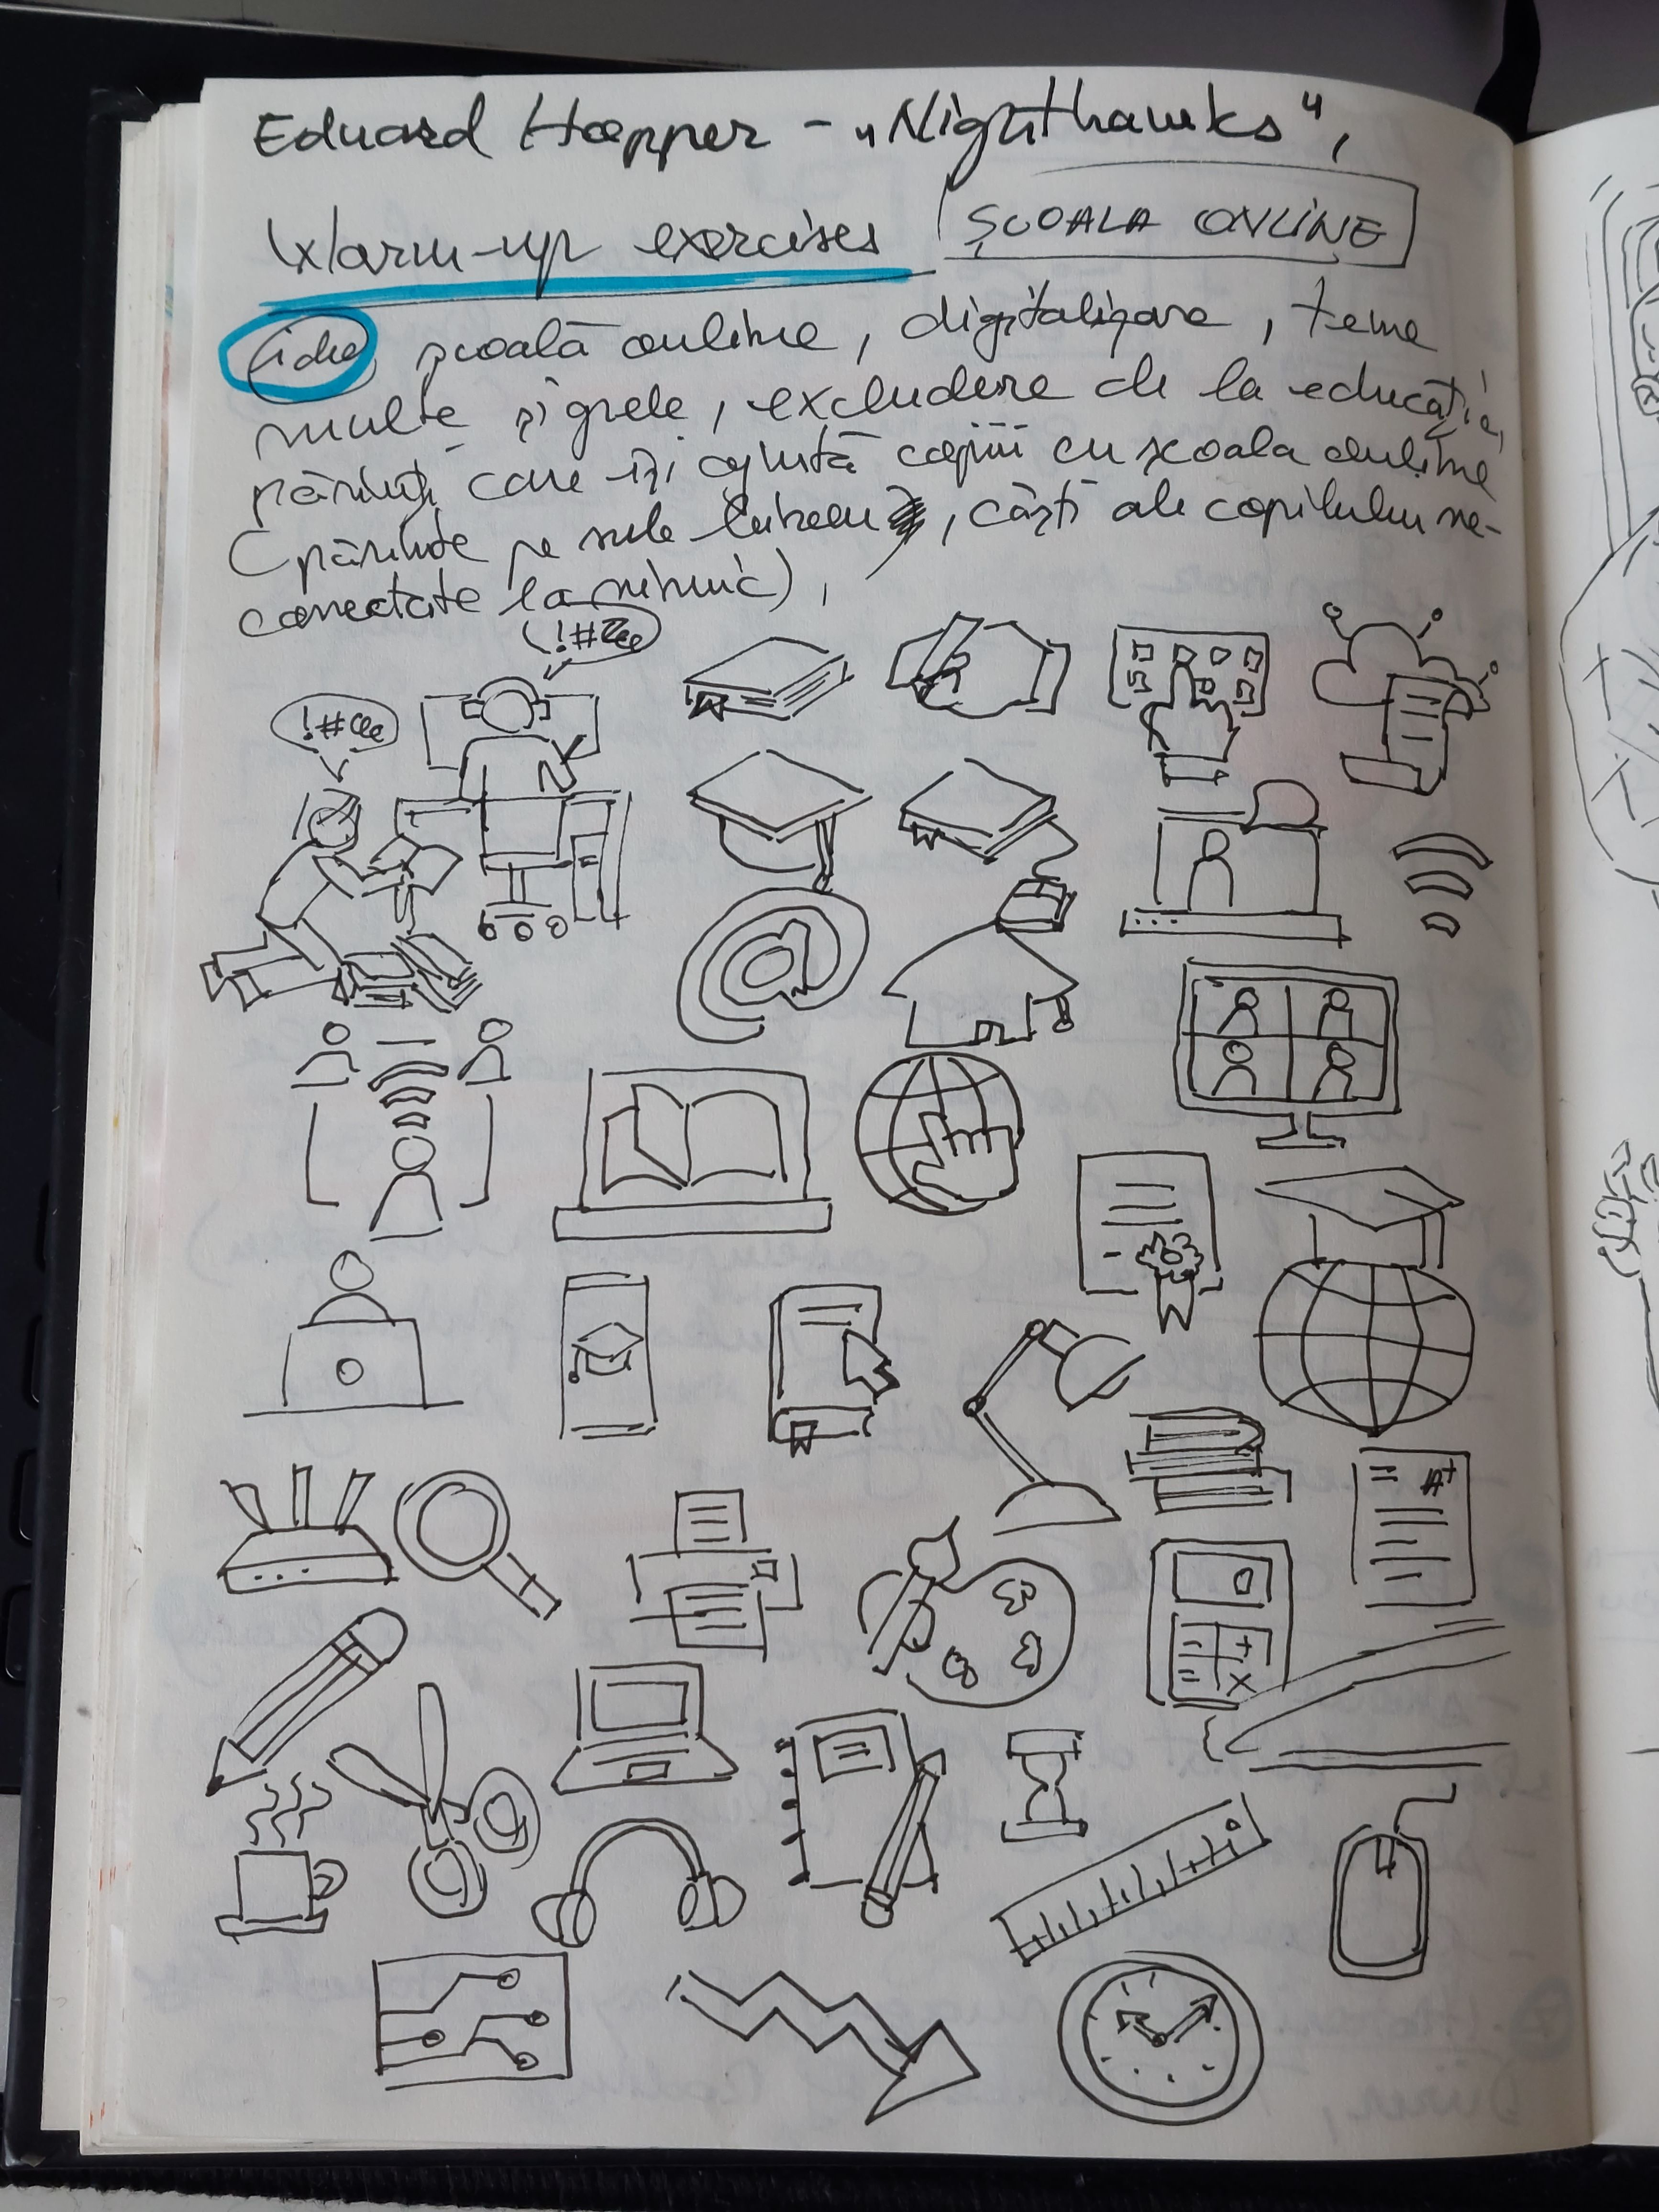 Eduard Hopper - „Nighthawks",
Warm-up exercises ȘCOALA ONLINE
idee școală online, digitalizare, teme
multe și grele, excludere de la educație,
părinți care își ajută copiii cu școala online
(părinte pe sub birou, căști ale copilului ne-
conectate la nimic),
!#
!#
@
A+
+
x